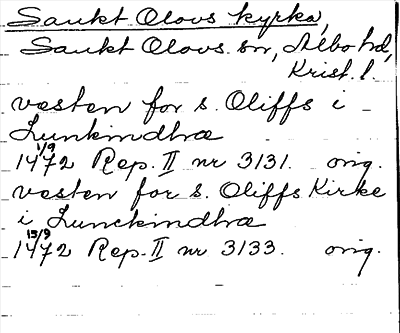 Sankt Olovs kyrka,
Sankt Olovs sn, Albo hd,
Krist. l.
væsten for s. Oliffs i
Lunkindhræ
1472 1/9 Rep. II nr 3131. orig.
vesten for s. Oliffs Kirke
i Lunckindhræ
1472 15/9 Rep. II nr 3133. orig.